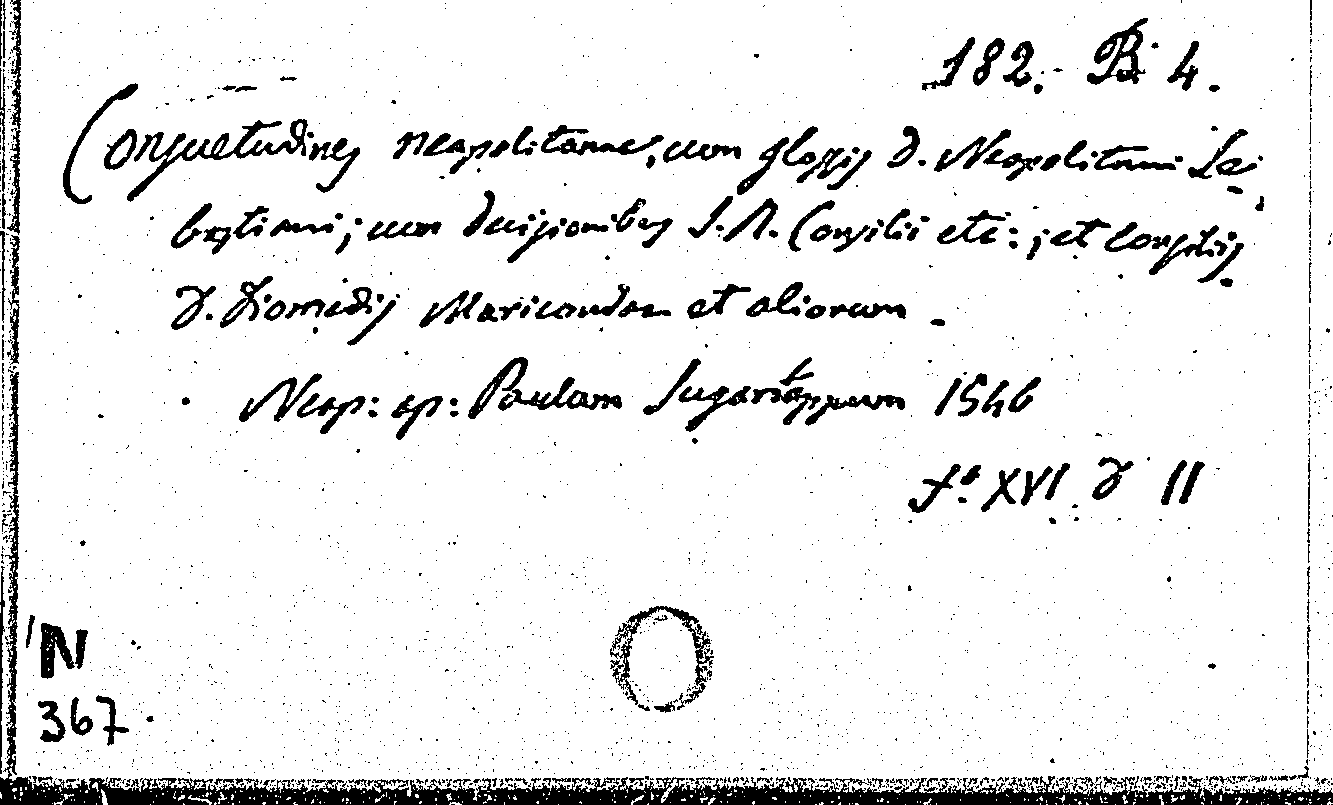 182. B. 4.
Consuetudines neapolitanae, cum glossis d. Neapolitani Se-
bastiani; cum decisionibus S. R. Consilii etc:; et consiliis
D. Diomedis Mariconda et aliorum
Neap: ap: Paulum Suganappum 1546
f.º XVI D II
N
367